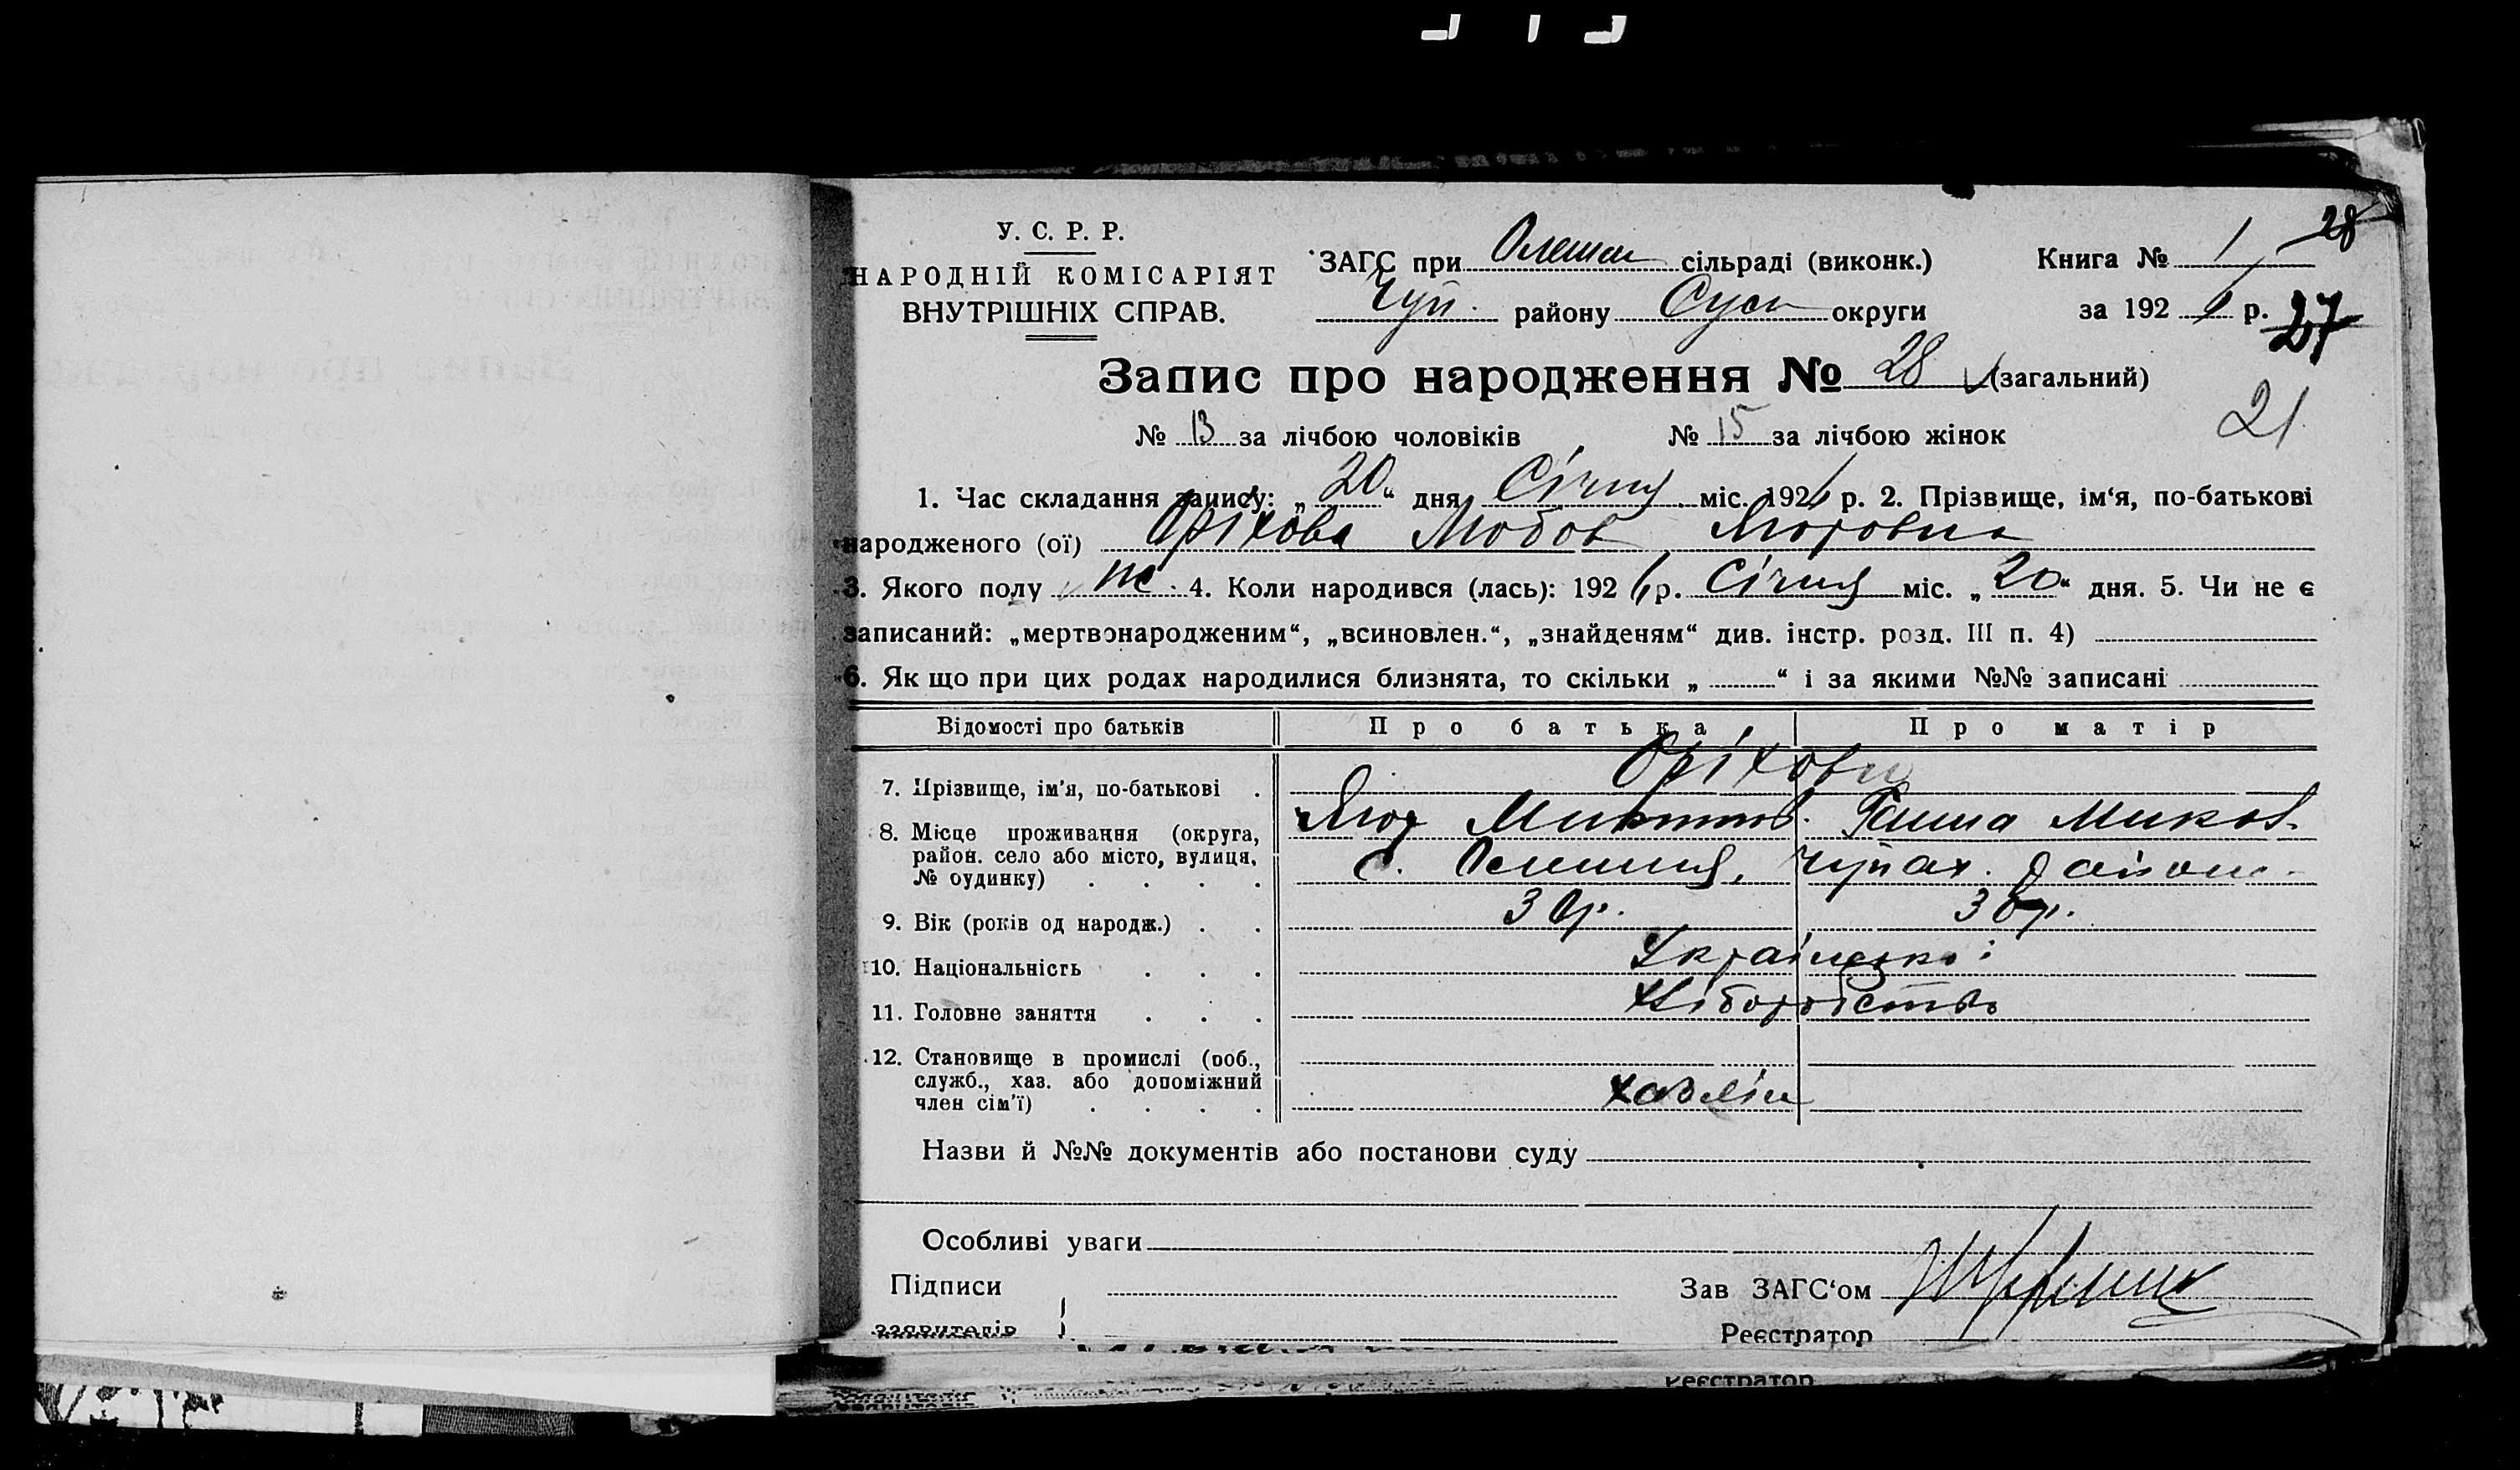 28
У. С. Р. Р.
НАРОДНІЙ КОМІСАРІЯТ
ВНУТРІШНІХ СПРАВ.
ЗАГС при Олешан сільраді (виконк.)
Чуп. району Сум округи
Книга № 1
за 192 р.
27
Запис про народження № 28 (загальний)
№ 13 за лічбою чоловіків № 15 за лічбою жінок
21
1. Час складання запису: „20“ дня Січня міс. 1926 р. 2. Прізвище, ім‘я, по-батькові
народженого (ої) Оріхова Любов
3. Якого полу жс. 4. Коли народився (лась): 1926 р. Січня міс. „20“ дня. 5. Чи не є
записаний: „мертвонародженим“, „всиновлен.“, „знайденям“ див. інстр. розд. III п. 4)
6. Як що при цих родах народилися близнята, то скільки „ “ і за якими №№ записані
Відомості про батьків Про батька Про матір
7. Прізвище, ім'я, по-батькові . Оріхови
Микит. Ганна Миков.
8. Місце проживання (округа,
район. село або місто, вулиця,
№ будинку) . . . . с. Олешня, Чупах. район
9. Вік (років од народж.) . . 30р. 30р.
10. Національність . . . Українські
11. Головне заняття . . . Хліборобство
12. Становище в промислі (роб.,
служб., хаз. або допоміжний
член сім'ї) . . . . хазяїн
Назви й №№ документів або постанови суду
Особливі уваги
Підписи Зав ЗАГС‘ом
заявителів Реєстратор
Реєстратор